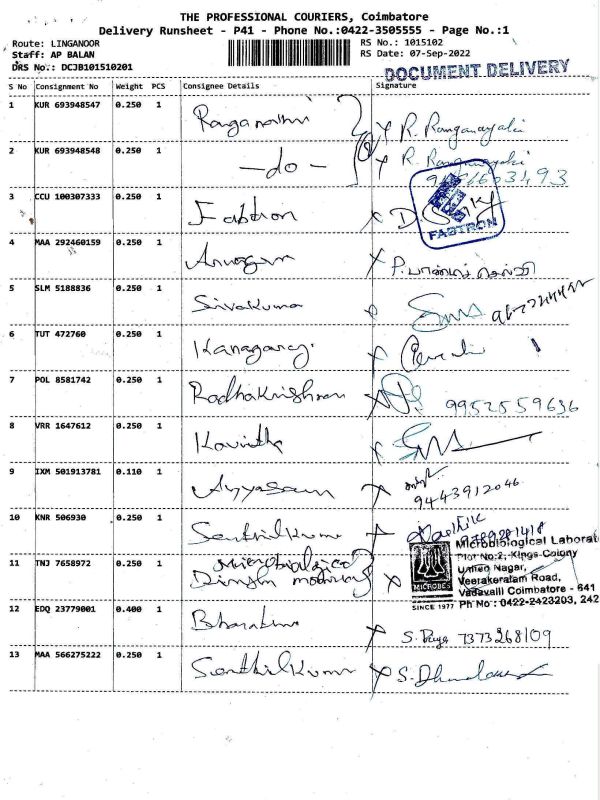 THE PROFESSIONAL COURIERS, Coimbatore
Delivery Runsheet - P41 - Phone No.:0422-3505555 - Page No.:1
Route: LINGANOOR
Staff: AP BALAN
DRS No.: DCJB101510201
RS No.: 1015102
RS Date: 07-Sep-2022
DOCUMENT DELIVERY
S No Consignment No Weight PCS Consignee Details Signature
1 KUR 693948547 0.250 1 Ranganathi R. Ranganayaki
2 KUR 693948548 0.250 1 -do- R. Ranganayaki
3 CCU 100307333 0.250 1 Fabtron D.
FABTRON
4 MAA 292460159 0.250 1
5 SLM 5188836 0.250 1 Sivakuma
6 TUT 472760 0.250 1 Kanagaraj
7 POL 8581742 0.250 1 Radhakrishnan 9952559636
8 VRR 1647612 0.250 1 Kavitha
9 IXM 501913781 0.110 1 Ayyasam 9443912046
10 KNR 506930 0.250 1 Senthilkuma
11 TNJ 7658972 0.250 1 Microbiological
Microbiological Laborat
Plot No:2, Kings Colony
United Nagar,
Veerakeralam Road,
Vadavalli Coimbatore - 641
Ph No : 0422-2423203, 242
MICROBES
SINCE 1977
12 EDQ 23779001 0.400 1 S. 7373268109
13 MAA 566275222 0.250 1 Senthilkuma S.